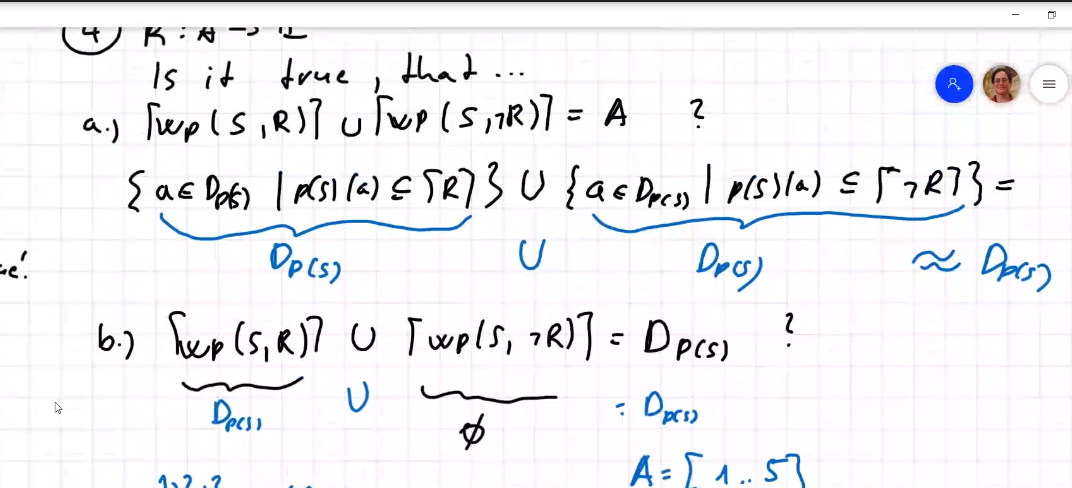 ④ R : A → L
Is it true, that ...
a.) ⌈wp(S,R)⌉ ∪ ⌈wp(S,¬R)⌉ = A ?
{ a ∈ D_p(S) | p(S)(a) ⊆ ⌈R⌉ } ∪ { a ∈ D_p(S) | p(S)(a) ⊆ ⌈¬R⌉ } =
D_p(S) ∪ D_p(S) ≈ D_p(S)
b.) ⌈wp(S,R)⌉ ∪ ⌈wp(S,¬R)⌉ = D_p(S) ?
D_p(S) ∪ ∅ = D_p(S)
A = [1..5]